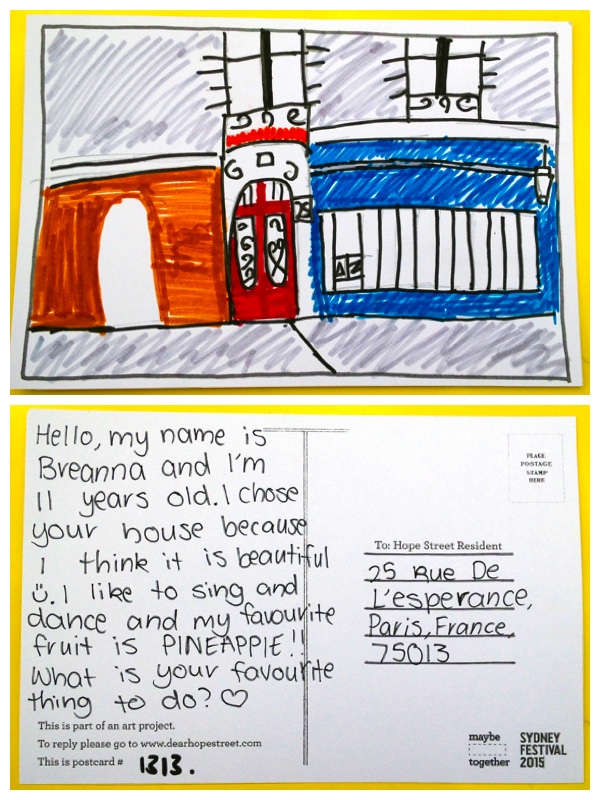 25
Hello, my name is
Breanna and I'm
11 years old. I chose
your house because
I think it is beautiful
☺. I like to sing and
dance and my favourite
fruit is PINEAPPlE!!
What is your favourite
thing to do? ♡
This is part of an art project.
To reply please go to www.dearhopestreet.com
This is postcard # 1313.
PLACE
POSTAGE
STAMP
HERE
To: Hope Street Resident
25 Rue De
L'esperance,
Paris, France,
75013
maybe
together
SYDNEY
FESTIVAL
2015